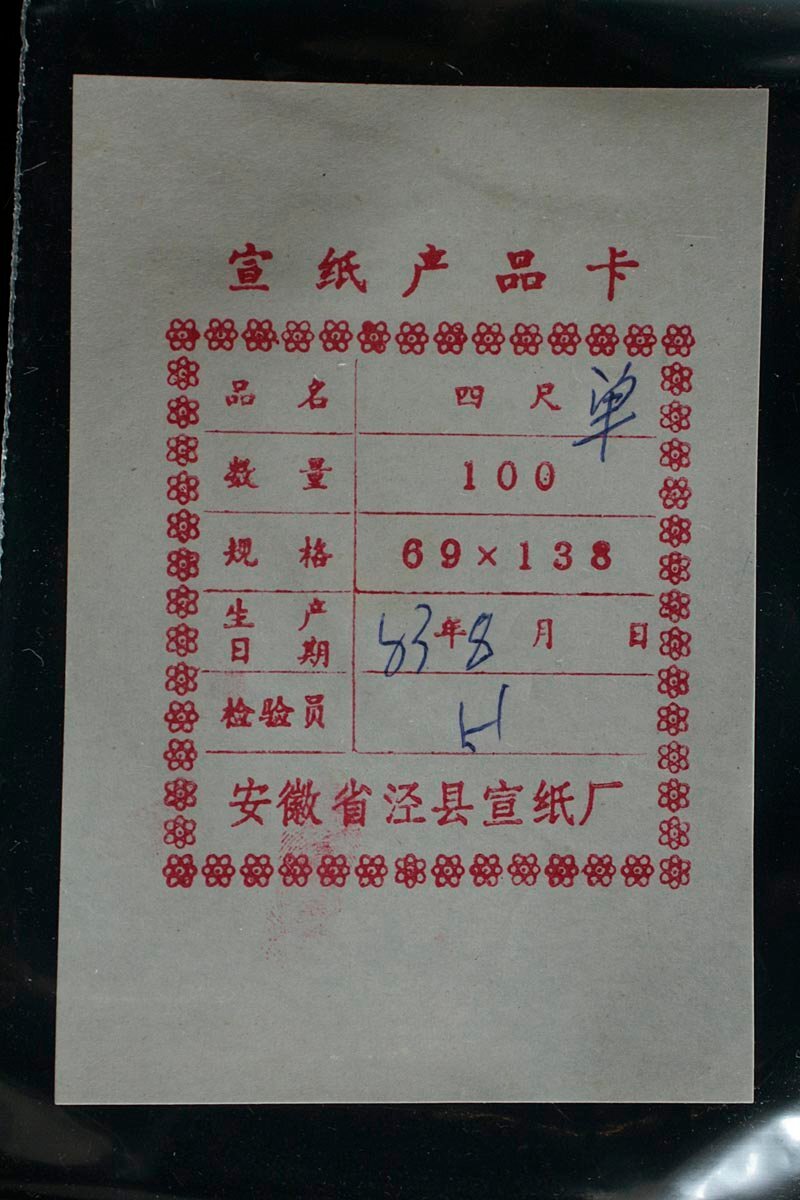 宣纸产品卡
品名 四尺单
数量 100
规格 69×138
生产日期 83年8月 日
检验员
安徽省泾县宣纸厂